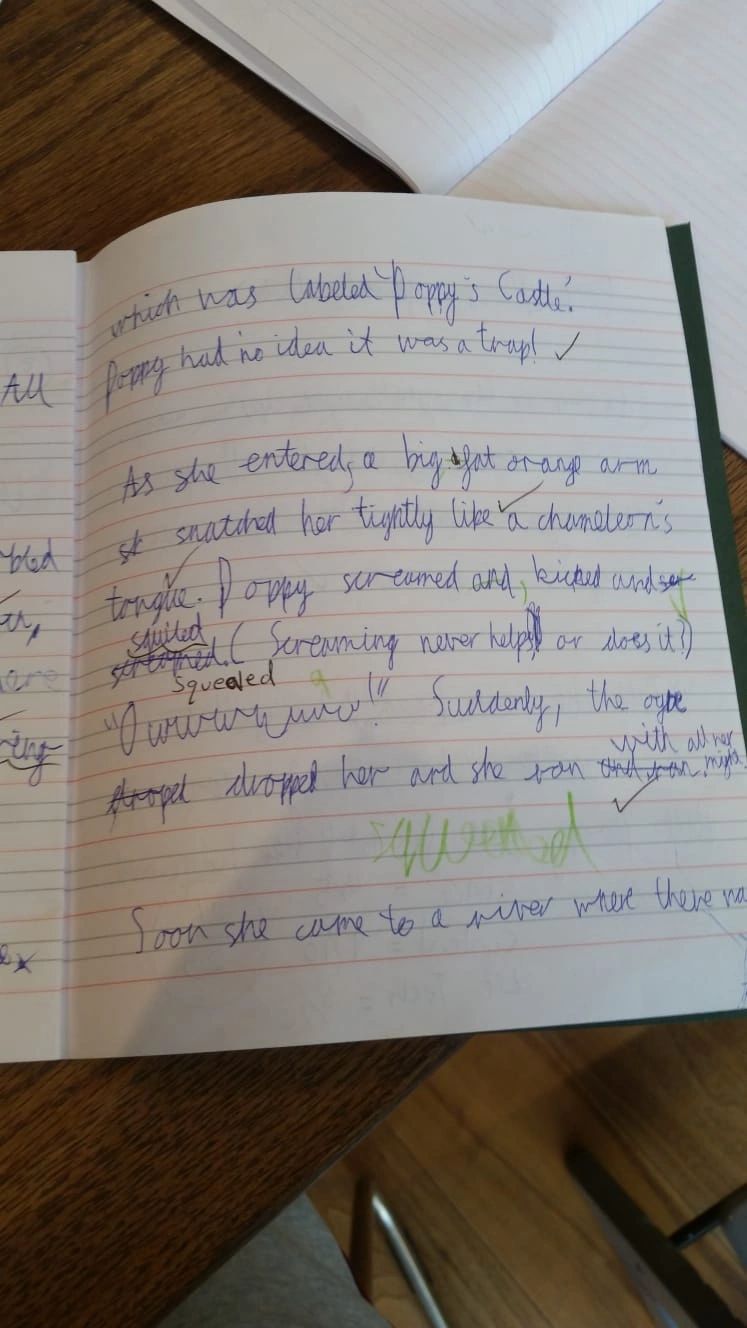 which was labeled 'Poppy's Castle'.
Poppy had no idea it was a trap!
All
As she entered, a big fat orange arm
sk snatched her tightly like a chameleon's
bled
tongue. Poppy screamed and, kicked and scr
squiled
screamed. (Screaming never helps or does it?)
are
squealed
"Owwwwwww!" Suddenly, the ogre
ing
with all her
droped dropped her and she ran and ran might.
squealed
Soon she came to a river where there wa